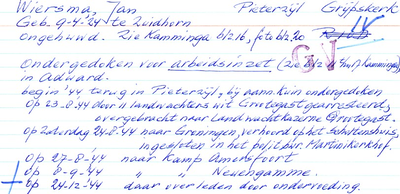 Wiersma, Jan Pieterzijl Grijpskerk
Geb. 9-4-'24 te Zuidhorn
Ongehuwd. Zie Kamminga blz 16, foto blz. 20
GV
Ondergedoken voor arbeidsinzet (zie blz Kamminga)
in Adward.
begin '44 terug in Pieterzijl, bij aann. kuin ondergedoken
Op 23-8-'44 door 'n landwachters uit Grootegast gearresteerd,
overgebracht naar Landwachtkazerne Grootegast.
Op Zaterdag 24-8-'44 naar Groningen, verhoord op het Scholtenshuis,
ingesloten in het pol. bur. Martinikerkhof.
Op 27-8-'44 naar Kamp Amersfoort
Op 8-9-'44 " " Neuengamme.
Op 24-12-'44 daar overleden door ondervoeding.